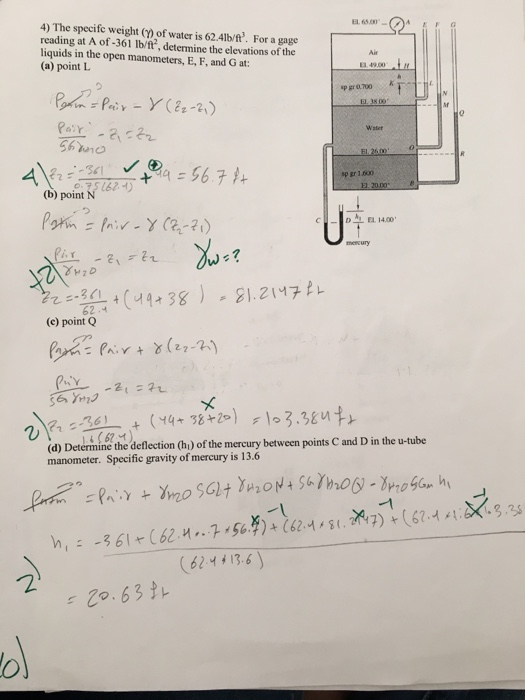 4) The specifc weight (γ) of water is 62.4lb/ft³. For a gage
reading at A of -361 lb/ft², determine the elevations of the
liquids in the open manometers, E, F, and G at:
(a) point L
Patm = Pair - γ (Z₂-Z₁)
Pair - Z₁ = Z₂
4) Z₂ = -361 ✓ + 49 = 56.7 ft
0.75(62.4)
(b) point N
Patm = Pair - γ (Z₂-Z₁)
Pair - Z₁ = Z₂ γw=?
γH2O
+2)
Z₂ = -361 + (49+38) = 81.2147 ft
62.4
(c) point Q
Patm = Pair + γ(Z₂-Z₁)
Pair - Z₁ = Z₂
SG γH2O
2) Z₂ = -361 + (49+38+20) = 103.384 ft
1.6(62.4)
(d) Determine the deflection (h₁) of the mercury between points C and D in the u-tube
manometer. Specific gravity of mercury is 13.6
Patm = Pair + γH2O SG L + γH2O N + SG γH2O Q - γH2O SGm h₁
-1 -1 -1
h₁ = -361 + (62.4*.7*56.7) + (62.4*81.2147) + (62.4*1.6*103.38
(62.4*13.6)
2)
= 20.63 ft
10)
El. 65.00'
A
E F G
Air
El. 49.00'
H
h
sp gr 0.700
K
L
El. 38.00'
N
M
Water
Q
El. 26.00'
O
R
sp gr 1.600
El. 20.00'
B
C
D
h₁
El. 14.00'
mercury